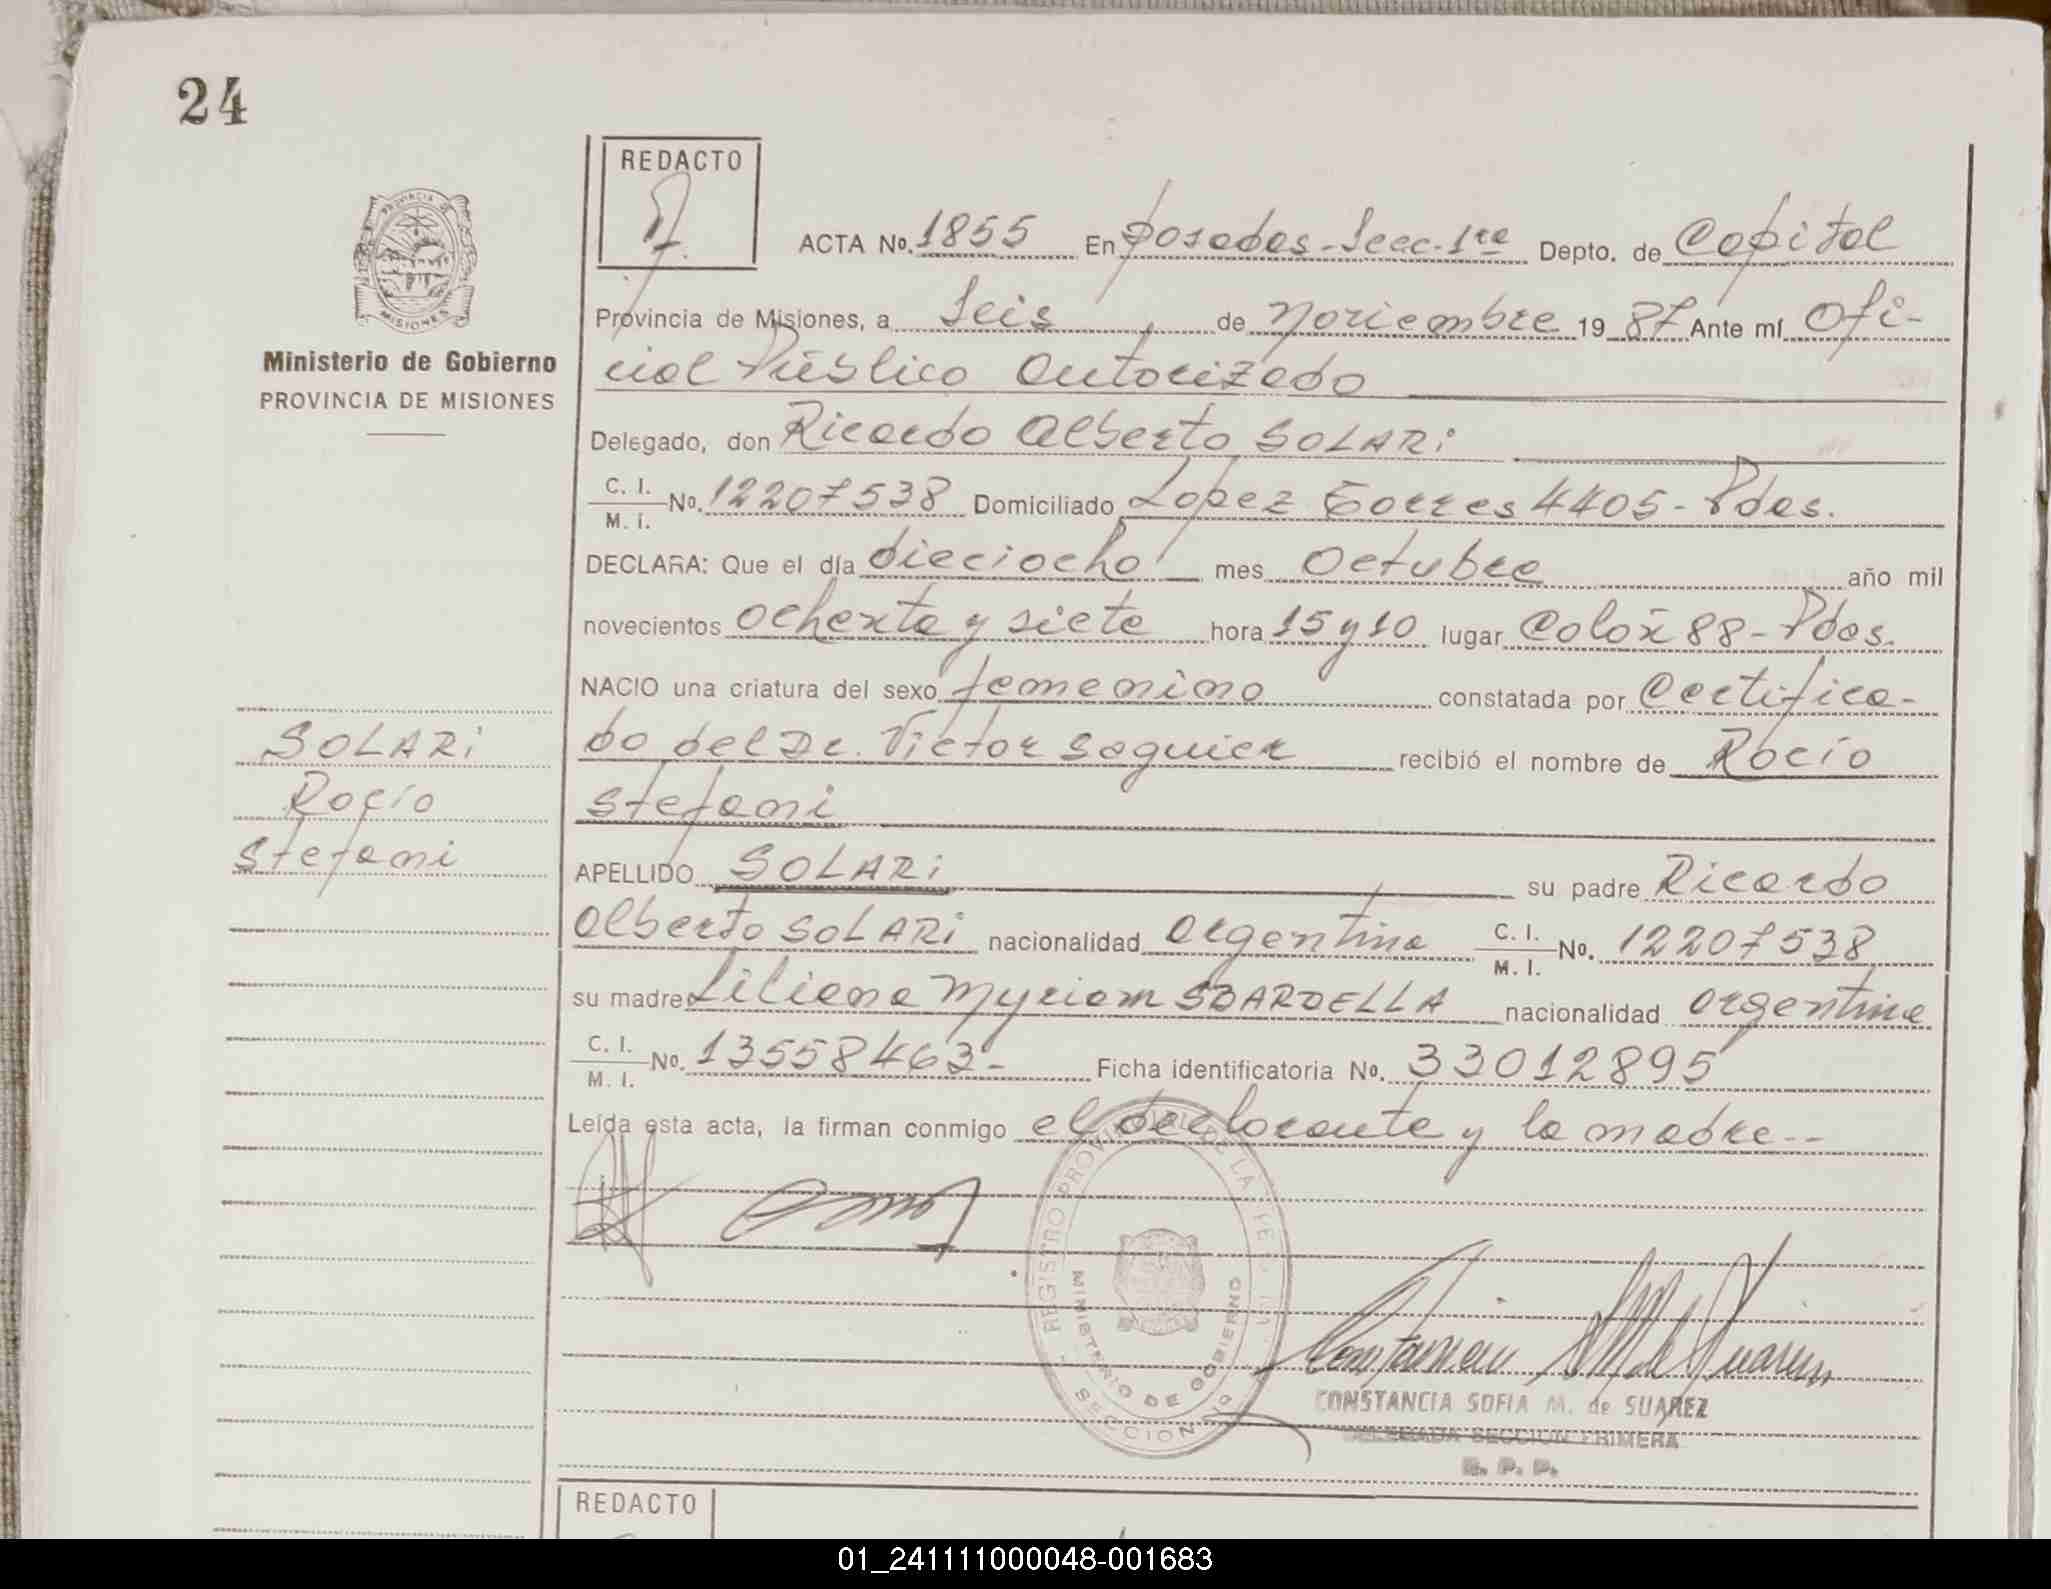 24
REDACTO
ACTA No. 1855 En Posadas-Secc-1ra Depto. de Capital
PROVINCIA DE
MISIONES
Provincia de Misiones, a Seis de Noviembre 1987 Ante mí Ofi-
Ministerio de Gobierno
PROVINCIA DE MISIONES
cial Público Autorizado
Delegado, don Ricardo Alberto SOLARi
C. I.
M. I. No. 12207538 Domiciliado Lopez Torres 4405- Pdas.
DECLARA: Que el día dieciocho mes Octubre año mil
novecientos Ochenta y siete hora 15 y 10 lugar Colón 88- Pdas.
NACIO una criatura del sexo femenino constatada por Certifica-
do del Dr. Victor Saguier recibió el nombre de Rocío
Stefani
SOLARi
Rocío
Stefani
APELLIDO SOLARi su padre Ricardo
Alberto SOLARi nacionalidad argentina C. I.
M. I. No. 12207538
su madre Liliana Myriam SBARDELLA nacionalidad argentina
C. I.
M. I. No. 13558463- Ficha identificatoria No. 33012895
Leída esta acta, la firman conmigo el declarante y la madre--
REGISTRO PROVINCIAL DE LA
MINISTERIO DE GOBIERNO
SECCION 1º
CONSTANCIA SOFIA M. de SUAREZ
DELEGADA SECCION PRIMERA
R. P. P.
REDACTO
01_241111000048-001683